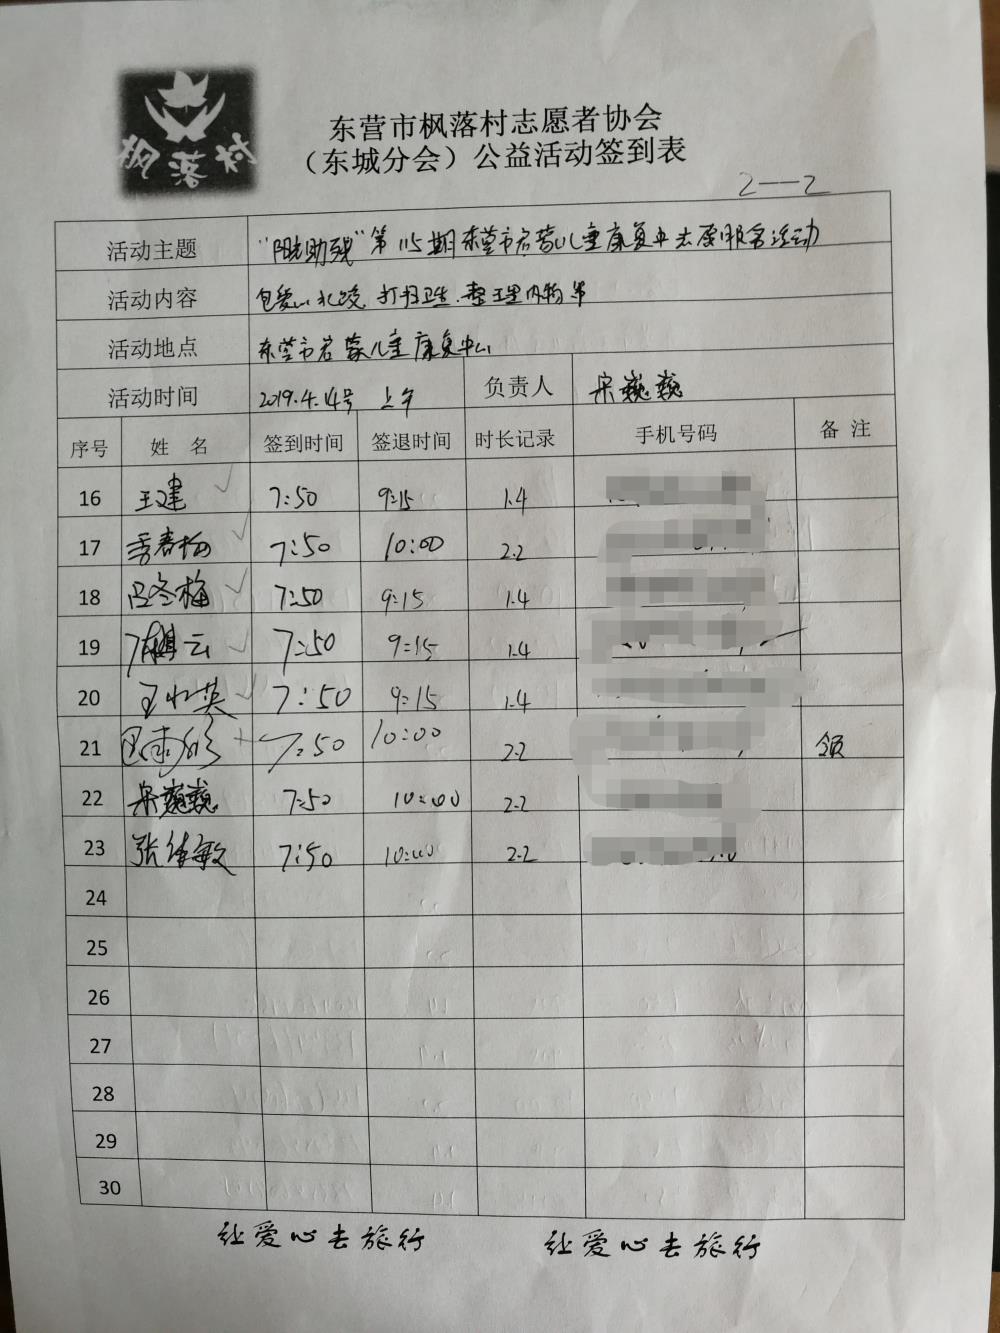 枫落村
东营市枫落村志愿者协会
（东城分会）公益活动签到表
2—2
活动主题 “阳光助残”第115期东营市启蒙儿童康复中心志愿服务活动
活动内容 包爱心水饺、打扫卫生、整理内物等
活动地点 东营市启蒙儿童康复中心
活动时间 2019.4.14号 上午 负责人 宋巍巍
序号 姓 名 签到时间 签退时间 时长记录 手机号码 备 注
16 王建 7:50 9:15 1.4
17 季春梅 7:50 10:00 2.2
18 吕冬梅 7:50 9:15 1.4
19 云 7:50 9:15 1.4
20 王 英 7:50 9:15 1.4
21 7:50 10:00 2.2 领
22 宋巍巍 7:50 10:00 2.2
23 张 敏 7:50 10:00 2.2
24
25
26
27
28
29
30
让爱心去旅行 让爱心去旅行